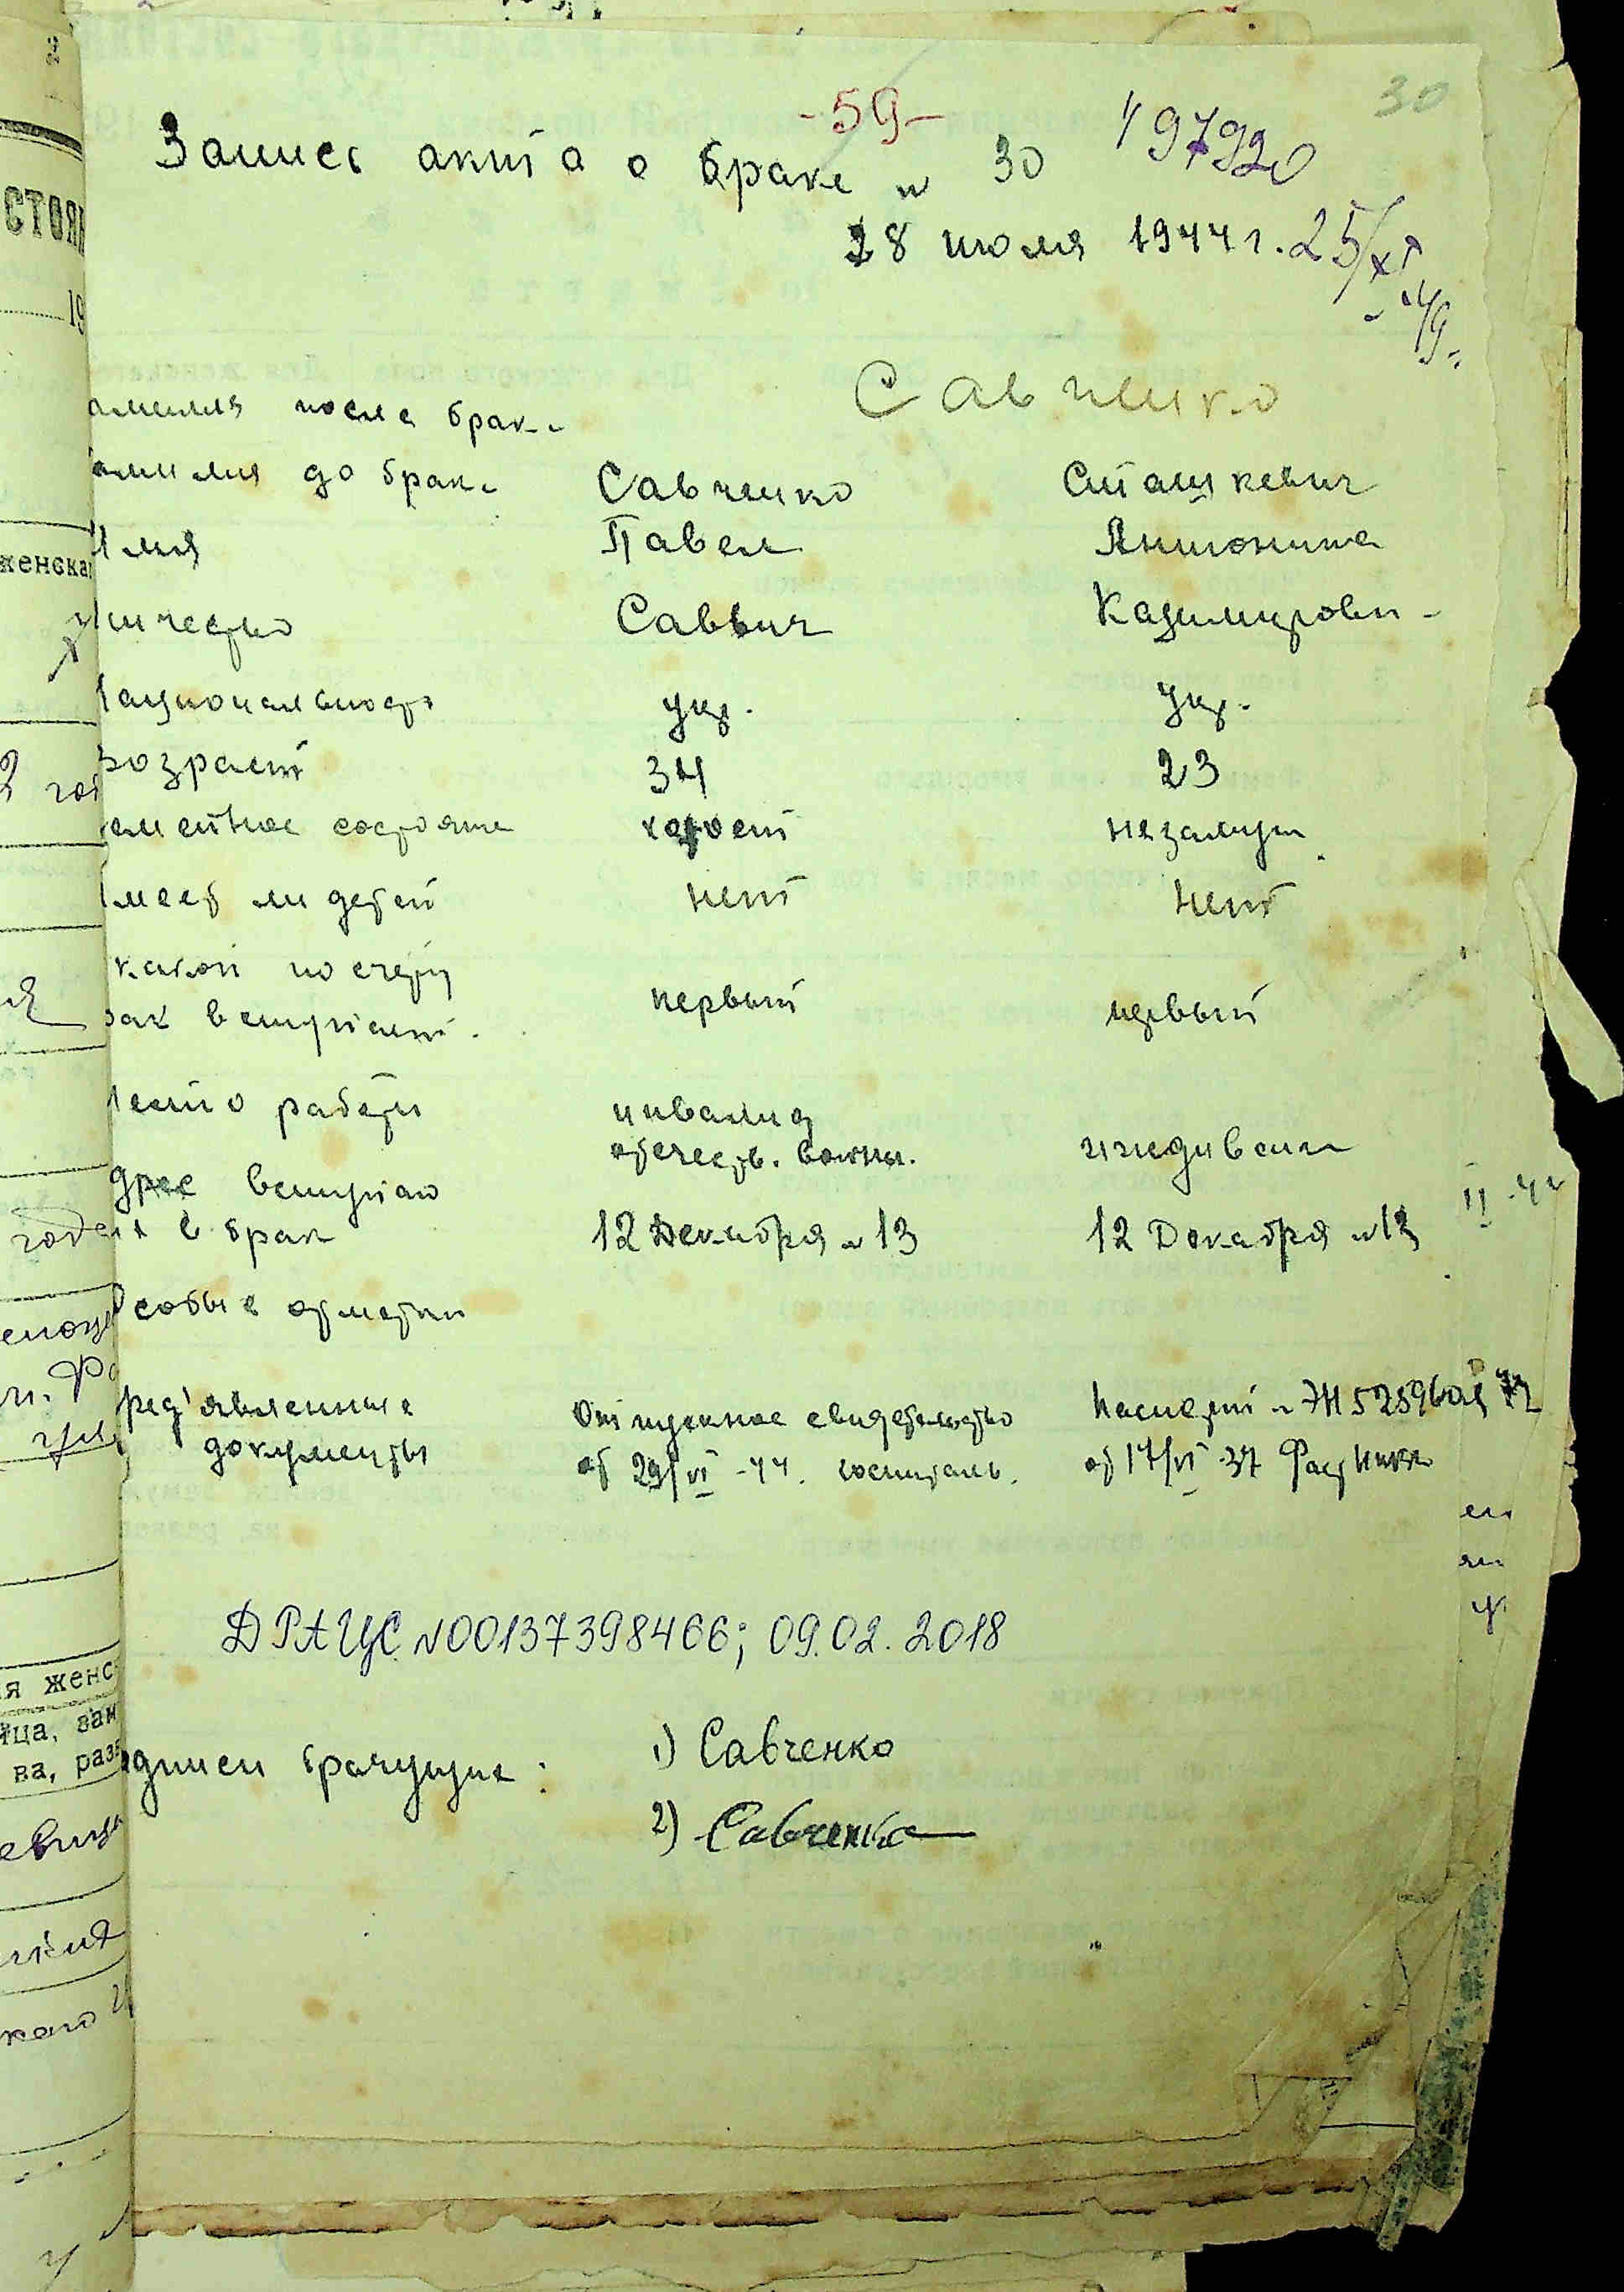 30
-59-
Запись акта о браке № 30 197920
28 июля 1944 г. 25/XI
-49.
Савченко
амилия после брак.
амилия до брак. Савченко Сташкевич
Имя Павел Антонина
тчество Саввич Казимирови-
Национальность укр. Укр.
Возраст 34 23
емейное состояние холост незамуж.
Имеет ли детей нет нет
какой по счету
рак вступает. первый первый
Место работы инвалид
отечеств. войны. иждивен
дрес вступаю
в брак 12 Декабря № 13 12 Декабря № 13
Особые отметки
ред'явленные Отпускное свидетельство Паспорт №
документы от 29/VI -44. госпиталь. от 17/VI -37
ДРАЦС №00137398466; 09.02.2018
дписи брачущие: 1) Савченко
2) Савченко
СТОЯ
19
женская
я женс
ица, зам
ва, разв